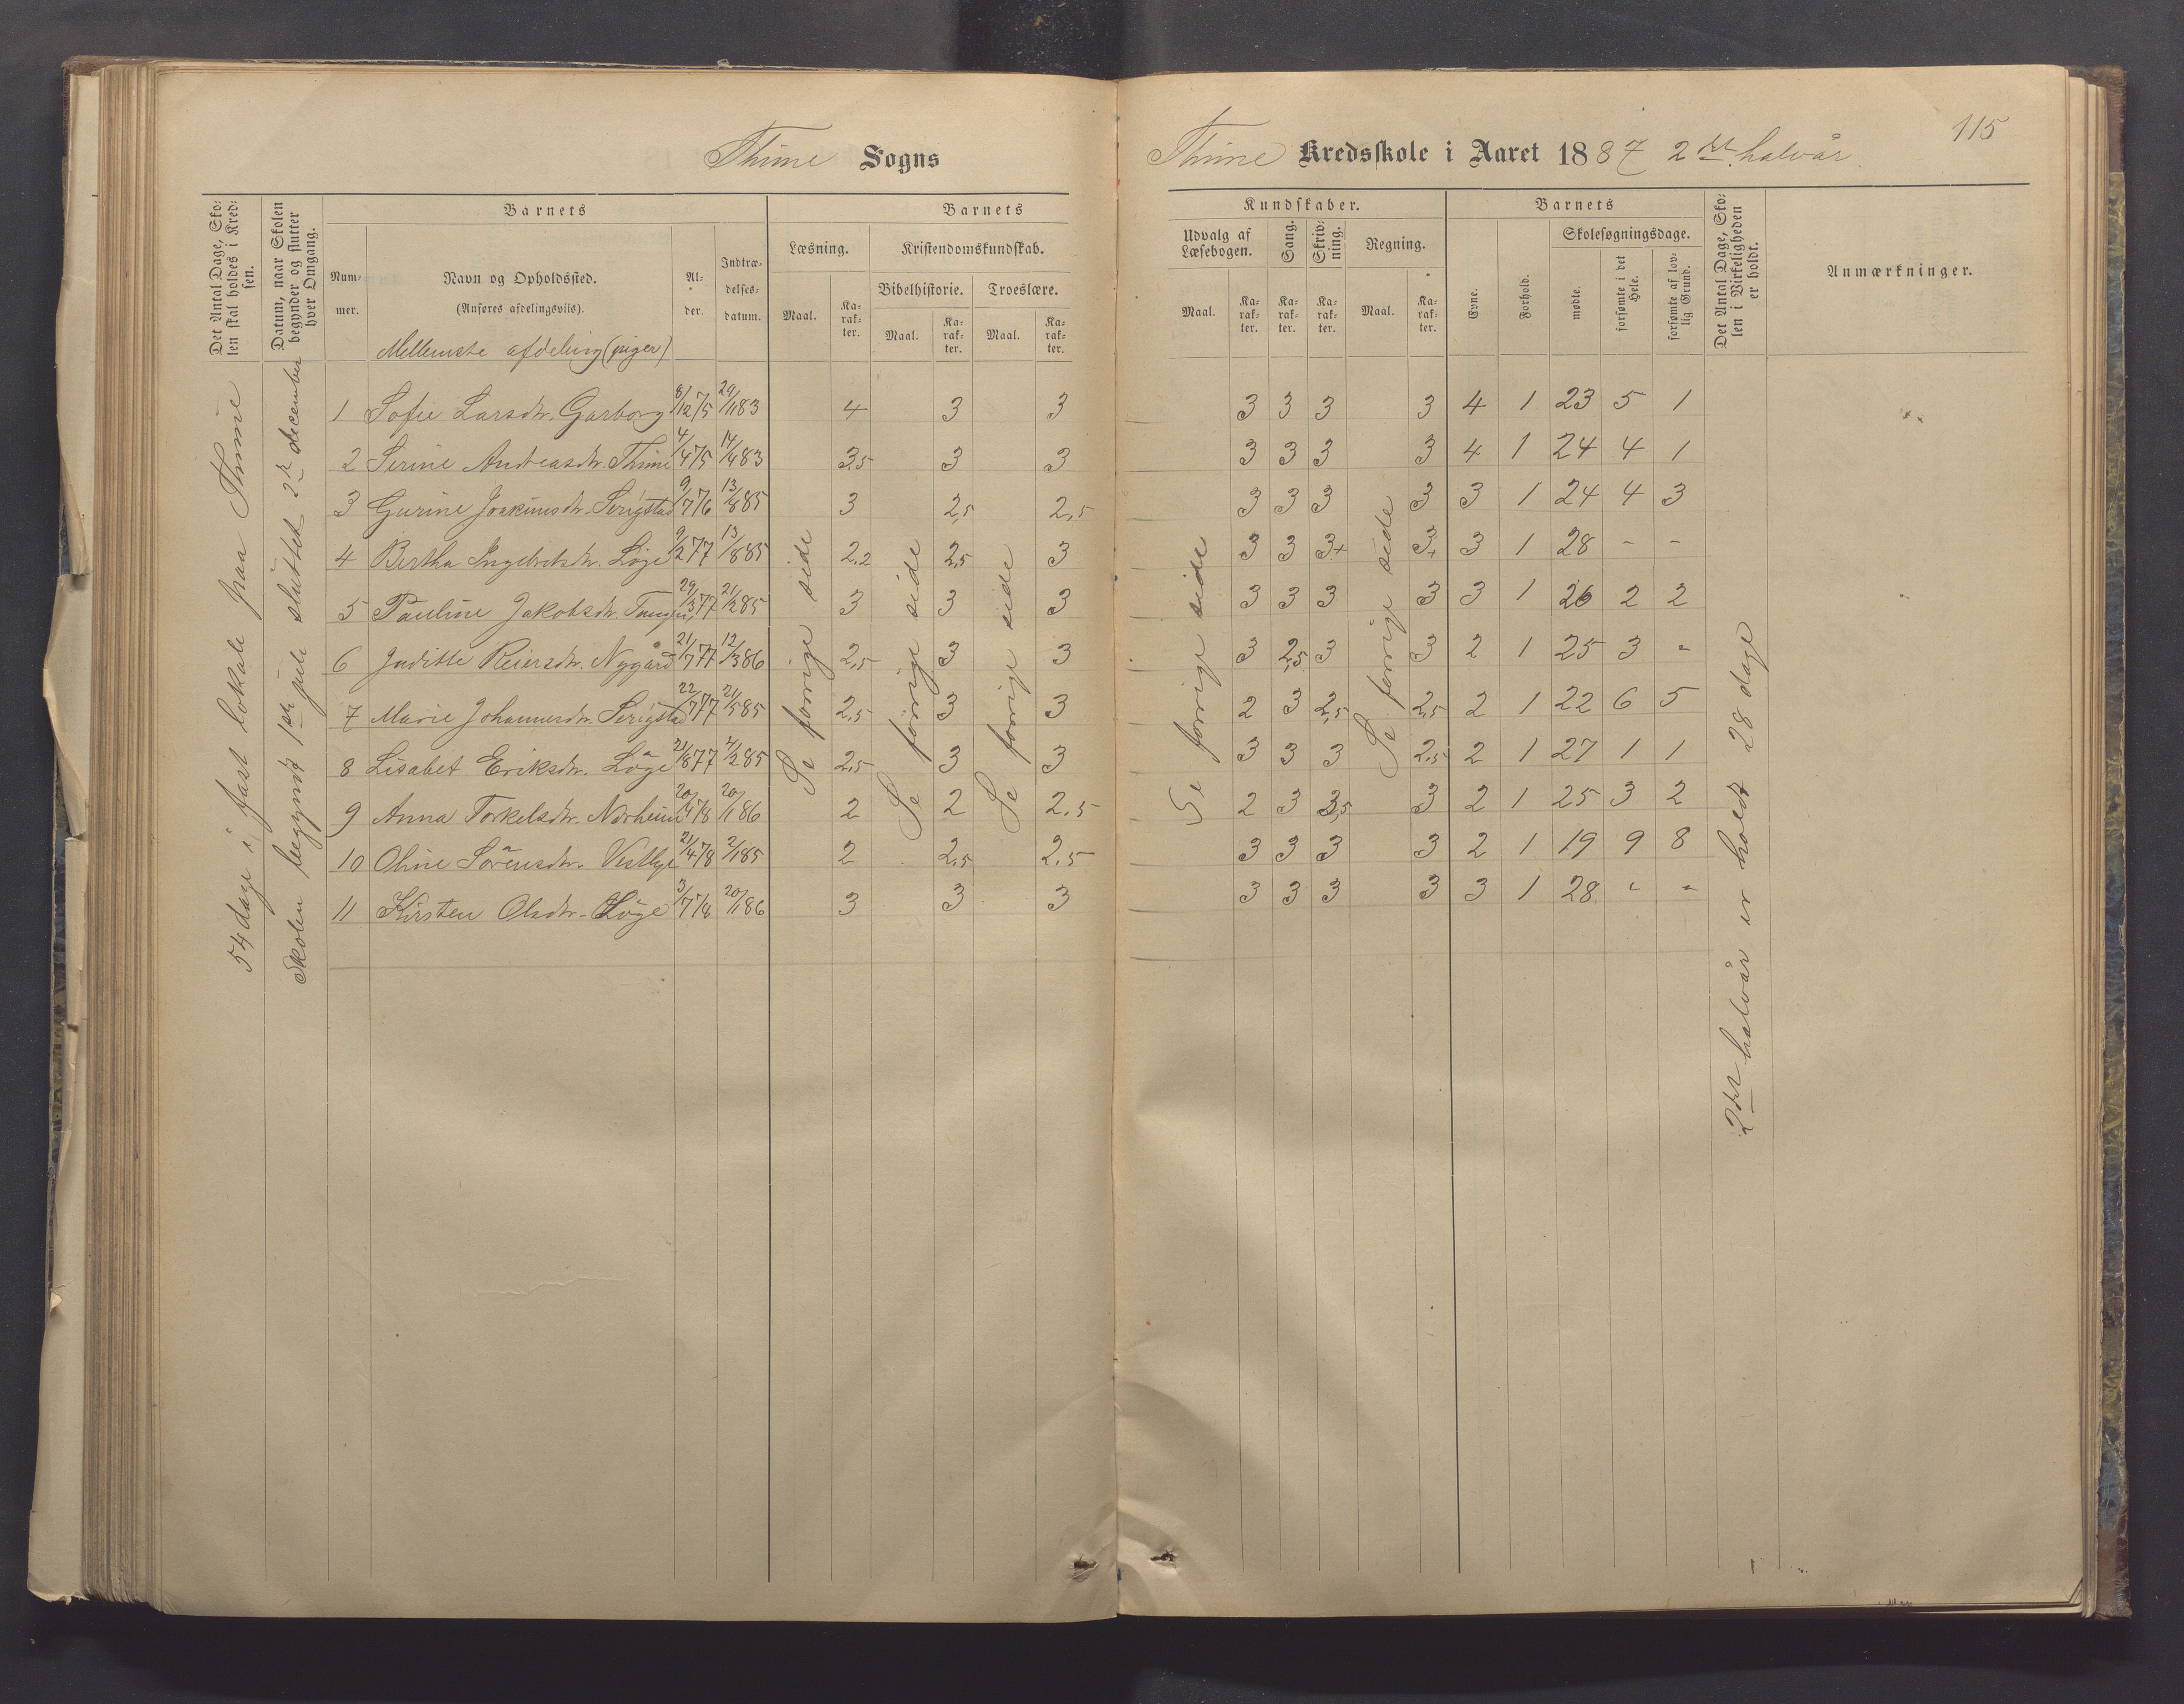 Thime Sogns
Thime Kredsskole i Aaret 1887 2det halvår.
115
Det Antal Dage, Skolen skal holdes i Kredsen.
Datum, naar Skolen begynder og slutter hver Omgang.
Barnets
Nummer.
Navn og Opholdssted.
(Anføres afdelingsviis).
Alder.
Indtrædelsesdatum.
Barnets
Læsning.
Maal.
Karakter.
Kristendomskundskab.
Bibelhistorie.
Maal.
Karakter.
Troeslære.
Maal.
Karakter.
Kundskaber.
Udvalg af Læsebogen.
Maal.
Karakter.
Sang.
Karakter.
Skrivning.
Karakter.
Regning.
Maal.
Karakter.
Barnets
Evne.
Forhold.
Skolesøgningsdage.
mødte.
forsømte i det Hele.
forsømte af lovlig Grund.
Det Antal Dage, Skolen i Virkeligheden er holdt.
Anmærkninger.
Mellemste afdeling (piger)
1 Sofie Larsdtr. Garborg 8/12 75 29/1 83 4 3 3 3 3 3 3 4 1 23 5 1
2 Serine Andreasdtr. Thime 4/4 75 14/4 83 3,5 3 3 3 3 3 3 4 1 24 4 1
3 Gurine Joakimsdtr. Serigstad 9/7 76 13/8 85 3 2,5 2,5 3 3 3 3 3 1 24 4 3
4 Bertha Ingebretsdtr. Löge 9/2 77 13/8 85 2,2 2,5 3 3 3 3+ 3+ 3 1 28 - -
5 Pauline Jakobsdtr. 29/3 77 21/2 85 3 3 3 3 3 3 3 3 1 26 2 2
6 Juditte Reiersdtr. Nygård 21/7 77 12/3 86 2,5 3 3 3 2,5 3 3 2 1 25 3 "
7 Marie Johannesdtr. Serigstad 22/7 77 21/5 85 2,5 3 3 2 3 2,5 2,5 2 1 22 6 5
8 Lisabet Eriksdtr. Löge 21/8 77 4/2 85 2,5 3 3 3 3 3 2,5 2 1 27 1 1
9 Anna Torkelsdtr. Norheim 20/4 78 20/1 86 2 2 2,5 2 3 3,5 3 2 1 25 3 2
10 Oline Sörensdtr. Vestlye 21/4 78 2/1 85 2 2,5 2,5 3 3 3 3 2 1 19 9 8
11 Kirsten Olsdtr. Löge 3/7 78 20/1 86 3 3 3 3 3 3 3 3 1 28 " "
54 dage i fast lokale paa Thime
Skolen begyndt 1ste juli sluttet 2de december
Se forrige side
Se forrige side
Se forrige side
Se forrige side
Se forrige side
2det halvår er holdt 28 dage